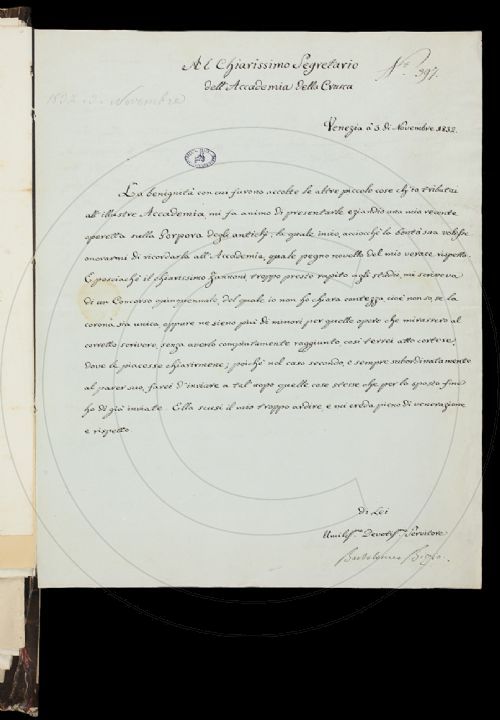 Al Chiarissimo Segretario
dell'Accademia della Crusca
N.º 397.
1832. 3. Novembre
Venezia a 3 di Novembre 1832.
La benignità con cui furono accolte le altre piccole cose ch'io tributai
all'illustre Accademia, mi fa animo di presentarle eziandio una mia recente
operetta sulla Porpora degli antichi; la quale invio, acciochè la bontà sua volesse
onorarmi di ricordarla all'Accademia, quale pegno novello del mio verace rispetto.
E posciachè il chiarissimo Zannoni, troppo presto rapito agli studio, mi scriveva
di un Concorso quinquennale, del quale io non ho chiara contezza cioè non so, se la
corona sia unica, oppure ne sieno più di minori per quelle opere che mirassero al
corretto scrivere, senza averlo compiutamente raggiunto così terrei atto cortese,
dove le piacesse chiarirmene; poichè nel caso secondo, e sempre subordinatamente
al parer suo, farei d'inviare a tal uopo quelle cose stesse che per lo sposto fine
ho di già inviate. Ella scusi il mio troppo ardire, e mi creda pieno di venerazione
e rispetto
di Lei
Umiliss.º Devotiss.º Servitore
Bartolomeo Bizio.